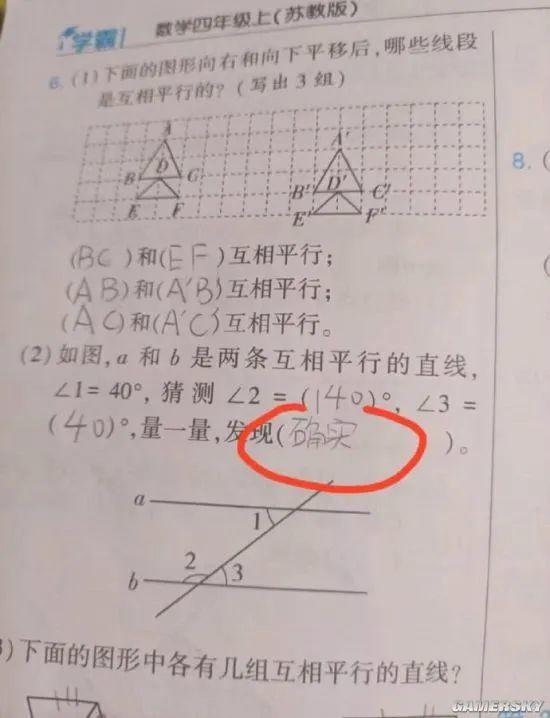 学霸
数学四年级上(苏教版)
6. (1)下面的图形向右和向下平移后,哪些线段
是互相平行的?(写出3组)
8. (
A
A'
B D C
B' D' C'
E F
E' F'
(BC)和(EF)互相平行;
(AB)和(A'B')互相平行;
(AC)和(A'C')互相平行。
(2)如图,a和b是两条互相平行的直线,
∠1=40°,猜测∠2=(140)°,∠3=
(40)°,量一量,发现(确实 )。
a
1
2
b 3
)下面的图形中各有几组互相平行的直线?
GAMERSKY